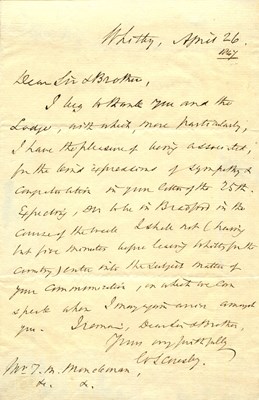 Whitby, April 26.
1847
Dear Sir & Brother,
I beg to thank you and the
Lodge, with which, more particularly,
I have the pleasure of being associated,
for the kind expressions of sympathy &
congratulation in your letter of the 25th.
Expecting, to be in Bradford in the
course of the week I shall not (having
but five minutes before leaving Whitby for the
country) enter into the subject matter of
your communication, on which we can
speak when I may again arrive amongst
you. I remain, Dear Sir & Brother,
Yours very faithfully
Wm Scoresby.
Mr T. M.
&c. &.